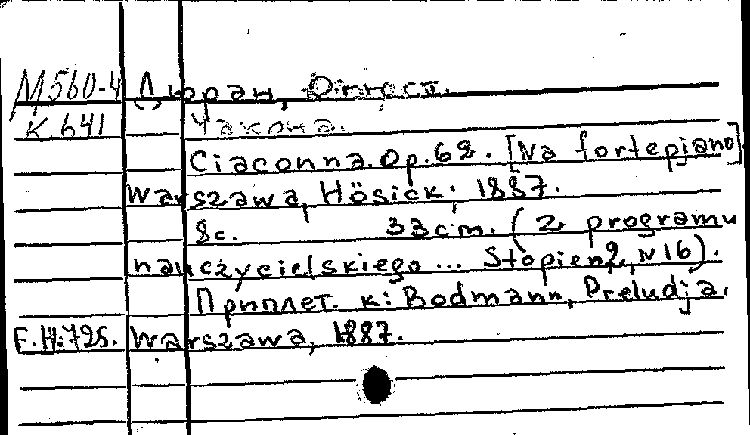 М560-4 Дюран, Огюст.
К 641 Чакона.
Ciaconna. Op. 62. [Na fortepjano]
Warszawa, Hösick, 1887.
8c. 33 cm. (Z programu
nauczycielskiego ... Stopień 2, N 16).
Приплет. к: Bodmann, Preludja.
F.И:725. Warszawa, 1887.